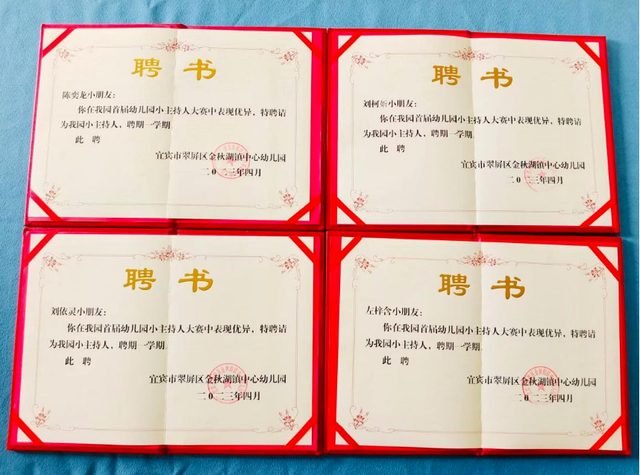 聘书
陈奕龙小朋友:
你在我园首届幼儿园小主持人大赛中表现优异，特聘请
为我园小主持人，聘期一学期.
此聘
宜宾市翠屏区金秋湖镇中心幼儿园
二0二三年四月
聘书
刘柯妡小朋友:
你在我园首届幼儿园小主持人大赛中表现优异，特聘请
为我园小主持人，聘期一学期.
此聘
宜宾市翠屏区金秋湖镇中心幼儿园
二0二三年四月
聘书
刘依灵小朋友:
你在我园首届幼儿园小主持人大赛中表现优异，特聘请
为我园小主持人，聘期一学期.
此聘
宜宾市翠屏区金秋湖镇中心幼儿园
二0二三年四月
聘书
左梓含小朋友:
你在我园首届幼儿园小主持人大赛中表现优异，特聘请
为我园小主持人，聘期一学期.
此聘
宜宾市翠屏区金秋湖镇中心幼儿园
二0二三年四月